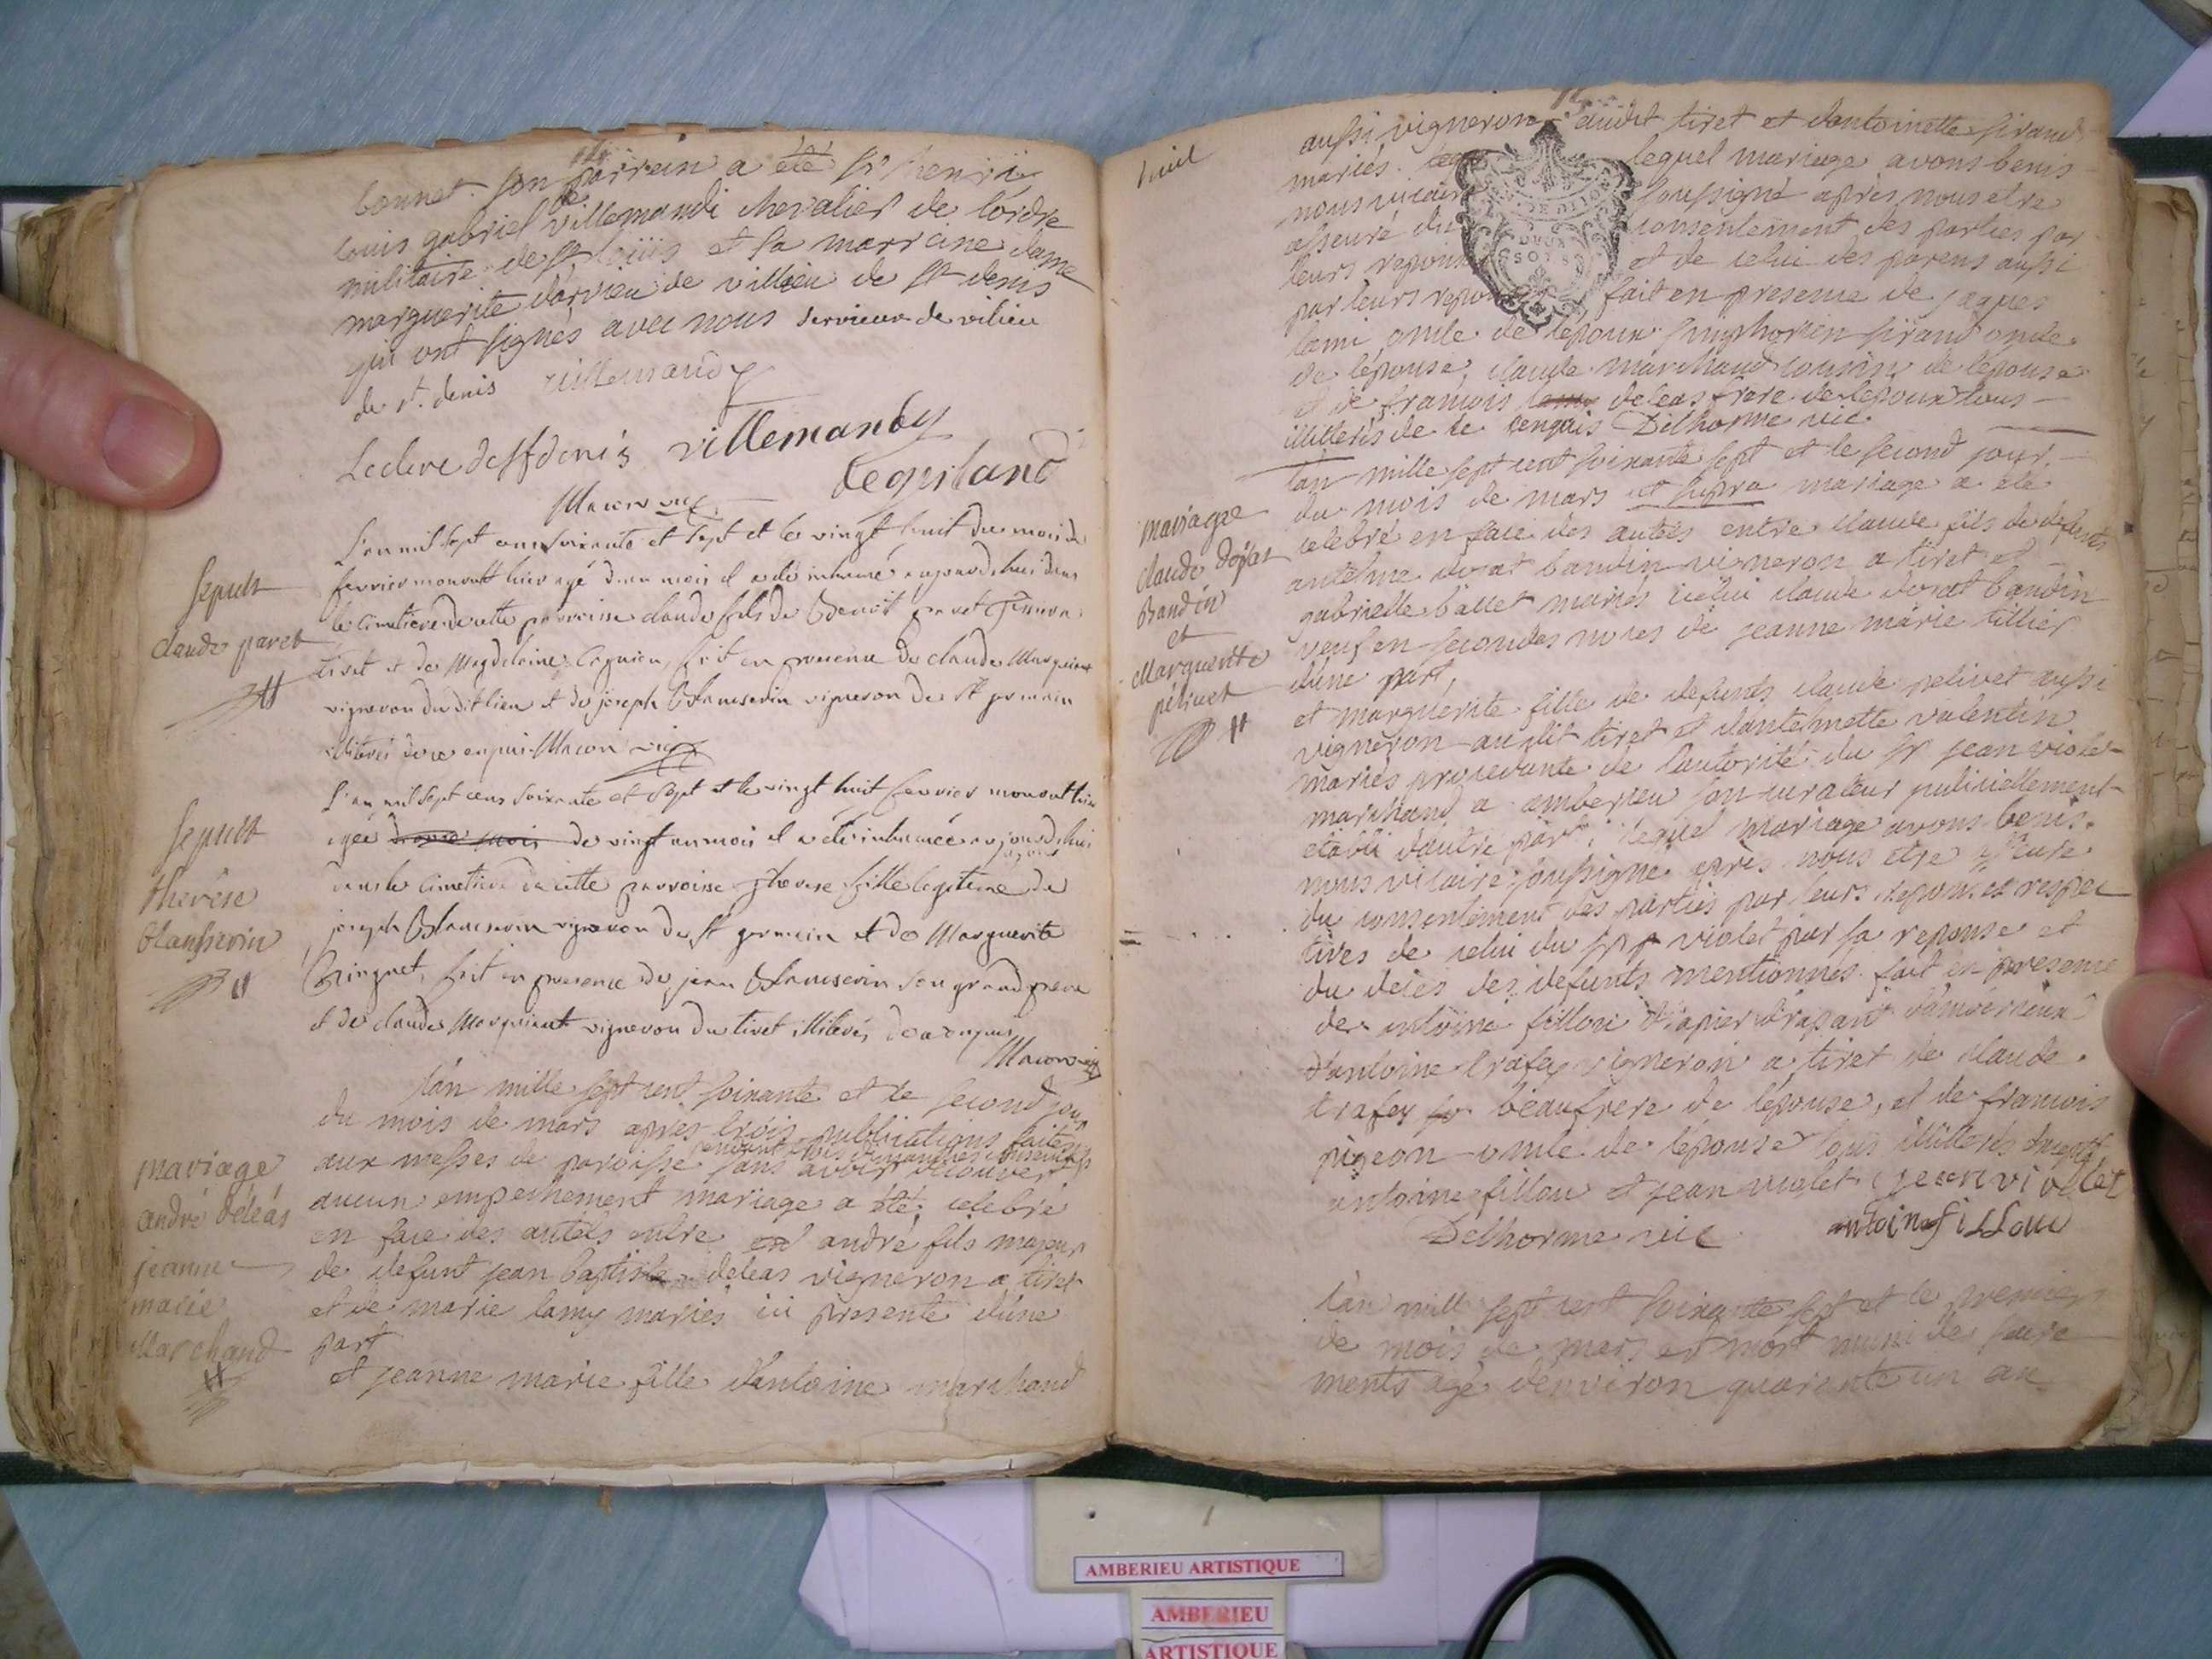 bonnet son parrein a été Sr henri
louis gabriel villemandi chevalier de lordre
militaire de st loüis et sa marreine dame
marguerite dorvieu de villieu de st denis
qui ont signés avec nous servieux de vilieu
de st. denis villemandy
Leclerc de st denis villemandy
Macon vic
L'an mil sept cens soixante et sept et le vingt huit du mois de
Sepult
claude paret
fevrier mourutt hier agé d'un mois il a été inhumé aujourdhui dans
le cimetiere de cette parroisse claude fils de Benoit paret
tiret et de Magdeleine fait en presence de claude
vigneron du dit lieu et de joseph Blanchevin vigneron de st germain
illiterés de ce enquis Macon vic
L'an mil sept cens soixante et sept et le vingt huit fevrier mourutt hier
Sepult
therése
blanchevin
agée de vingt un mois il a été inhumée aujourdhui
dans le cimetiere de cette parroisse therese fille legitime de
joseph Blanchevin vigneron de st germain et de Marguerite
fait en presence de jean Blanchevin son grand pere
et de claude vigneron du tiret illiterés de ce enquis
Macon vic
lán mille sept cent soixante et le second jour
du mois de mars apres trois publications faites
pendant trois dimanches consecutifs
mariage
andré déléas
jeanne
marie
Marchand
aux messes de paroisse sans avoir decouvert
aucun empechement mariage a été celebré
en face des autels entre andré fils majeur
de defunt jean baptiste deleas vigneron a tiret
et de marie lamy mariés ici presente dúne
part
et jeanne marie fille dántoine marchand
huit
aussi vigneron audit tiret et dantoinette sirand
mariés lequel mariage avons benis
nous vicaire soussigné après nous etre
asseuré du consentement des parties par
leurs reponses et de celui des parens aussi
par leurs reponses fait en presence de jaques
lami oncle de lépoux simphorien sirand oncle
de lépouse, claude marchand cousin de lépouse
et de francois deleas frere de lepoux tous
illitterés de ce enquis Delhorme vic.
lán mille sept cent soixante sept et le second jour
du mois de mars ut supra mariage a été
mariage
claude
Baudin
et
Marguerite
pelivet
celebré en face des autels entre claude fils de defunts
antelme dorat baudin vigneron a tiret et
gabrielle ballet mariés icelui claude dorat baudin
veuf en secondes noces de jeanne marie tillier
dúne part,
et marguerite fille de defunts claude pelivet aussi
vigneron audit tiret et dantoinette valentin
mariés procedante de láutorité du Sr jean violet
marchand a amberieu son curateur judiciellement
établi dáutre part; lequel mariage avons benis
nous vicaire soussigné après nous etre asseuré
du consentement des parties par leurs reponses respec
tives de celui du Sr violet par sa reponse et
du décés des defunts mentionnés fait en presence
de antoine fillon drapier drapant dámberieux
dántoine trafey vigneron a tiret de claude
trafey beaufrere de lépouse, et de francois
pigeon oncle de lépouse tous illitterés excepté
antoine fillon et jean violet jean violet
Delhorme vic antoine fillon
lán mill sept cent soixante sept et le premier
de mois de mars est mort muni de sacre
ments agé dénviron quarante un an
AMBERIEU ARTISTIQUE
AMBERIEU
ARTISTIQUE